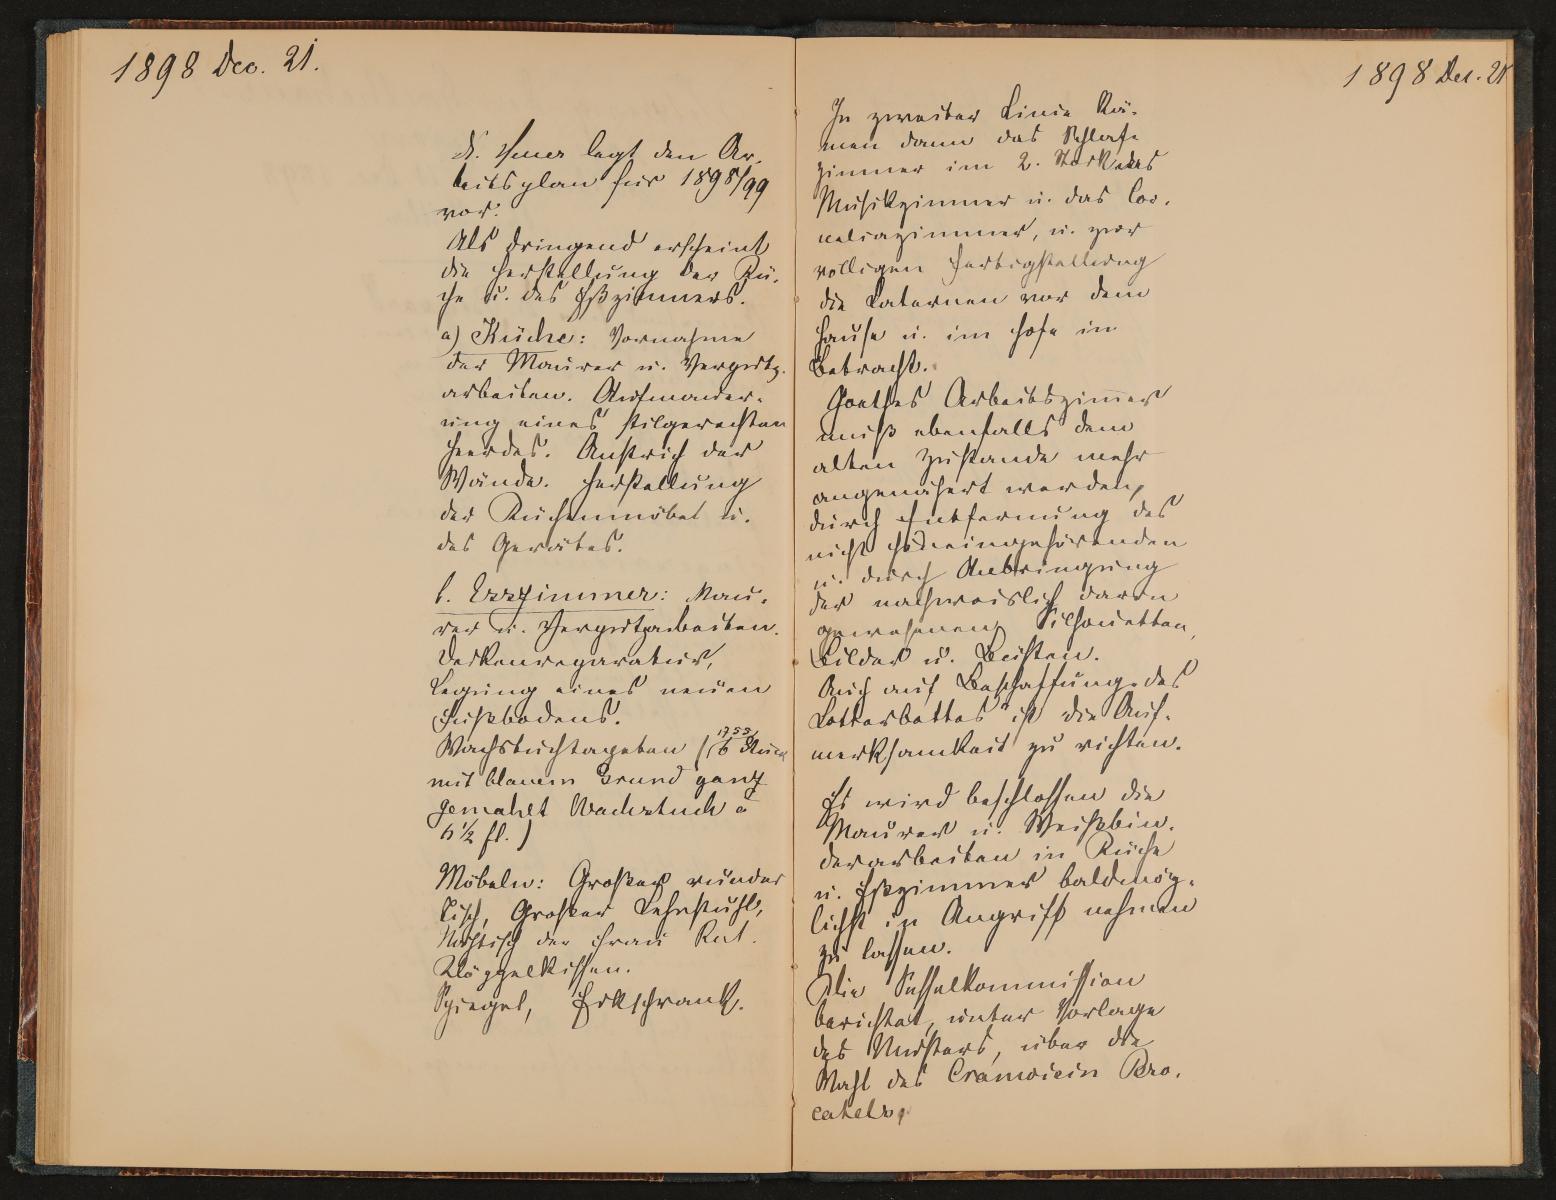 1898 Dec. 21.
H. Heuer legt den Ar-
beitsplan für 1898/99
vor:
Als dringend erscheint
die Herstellung der Kü-
che u. des Eßzimmers.
a) Küche: Vornahme
der Maurer u. Verputz-
arbeiten. Aufmauer-
ung eines stilgerechten
Heerdes. Anstrich der
Wände. Herstellung
der Küchenmöbel u.
des Gerätes.
b. Esszimmer: Mau-
rer u. Verputzarbeiten.
Deckenreparatur,
Legung eines neuen
Fussbodens.
Wachstuchtapeten (1755/6
mit blauem Grund ganz
gemahlt Wachstuch à
6 1/2 fl.)
Möbeln: Grosser runder
Tisch, Grosser Lehnstuhl,
Nähtisch der Frau Rat.
Klöppelkissen.
Spiegel, Eckschrank.
1898 Dec. 21
In zweiter Linie kä-
men dann das Schlaf-
zimmer im 2. Stock das
Musikzimmer u. das Cor-
neliazimmer, u. zur
völligen Fertigstellung
die Laternen vor dem
Hause u. im Hofe in
Betracht.
Goethes Arbeitszimmer
muß ebenfalls dem
alten Zustande mehr
angenähert werden,
durch Entfernung des
nicht hineingehörenden
u. durch Anbringung
der nachweislich darin
gewesenen Silhouetten,
Bilder u. Büsten.
Auch auf Beschaffung des
Lotterbettes ist die Auf-
merksamkeit zu richten.
Es wird beschlossen die
Maurer u. Weissbin-
derarbeiten in Küche
u. Esszimmer baldmög-
lichst in Angriff nehmen
zu lassen.
Die Sesselkommission
berichtet, unter Vorlage
des Musters, über die
Wahl des Cramoisin Bro-
catels,